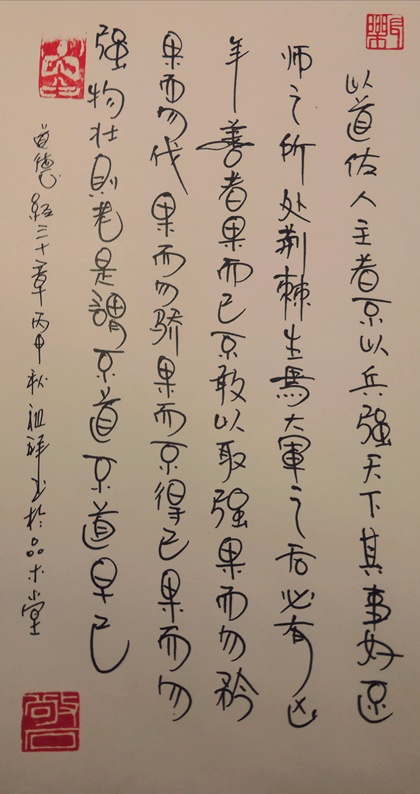 以道佐人主者不以兵强天下其事好还
师之所处荆棘生焉大軍之后必有凶
年善者果而已不敢以取强果而勿矜
果而勿伐果而勿骄果而不得已果而勿
强物壮則老是謂不道不道早已
道德经三十章丙申秋祖祥书於品木堂